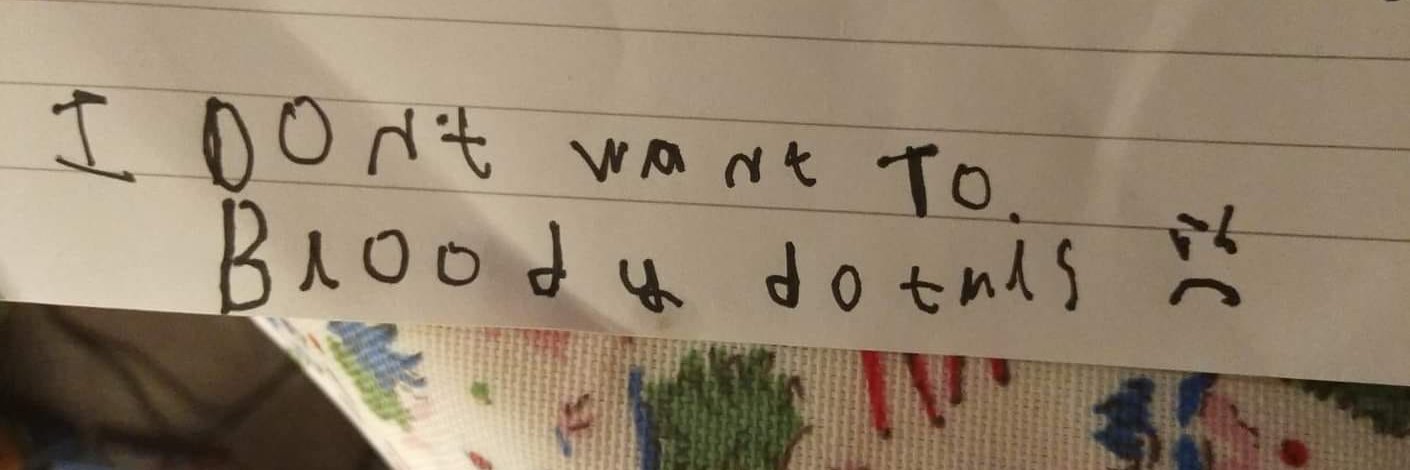 I DOn't want To.
Bloody do this